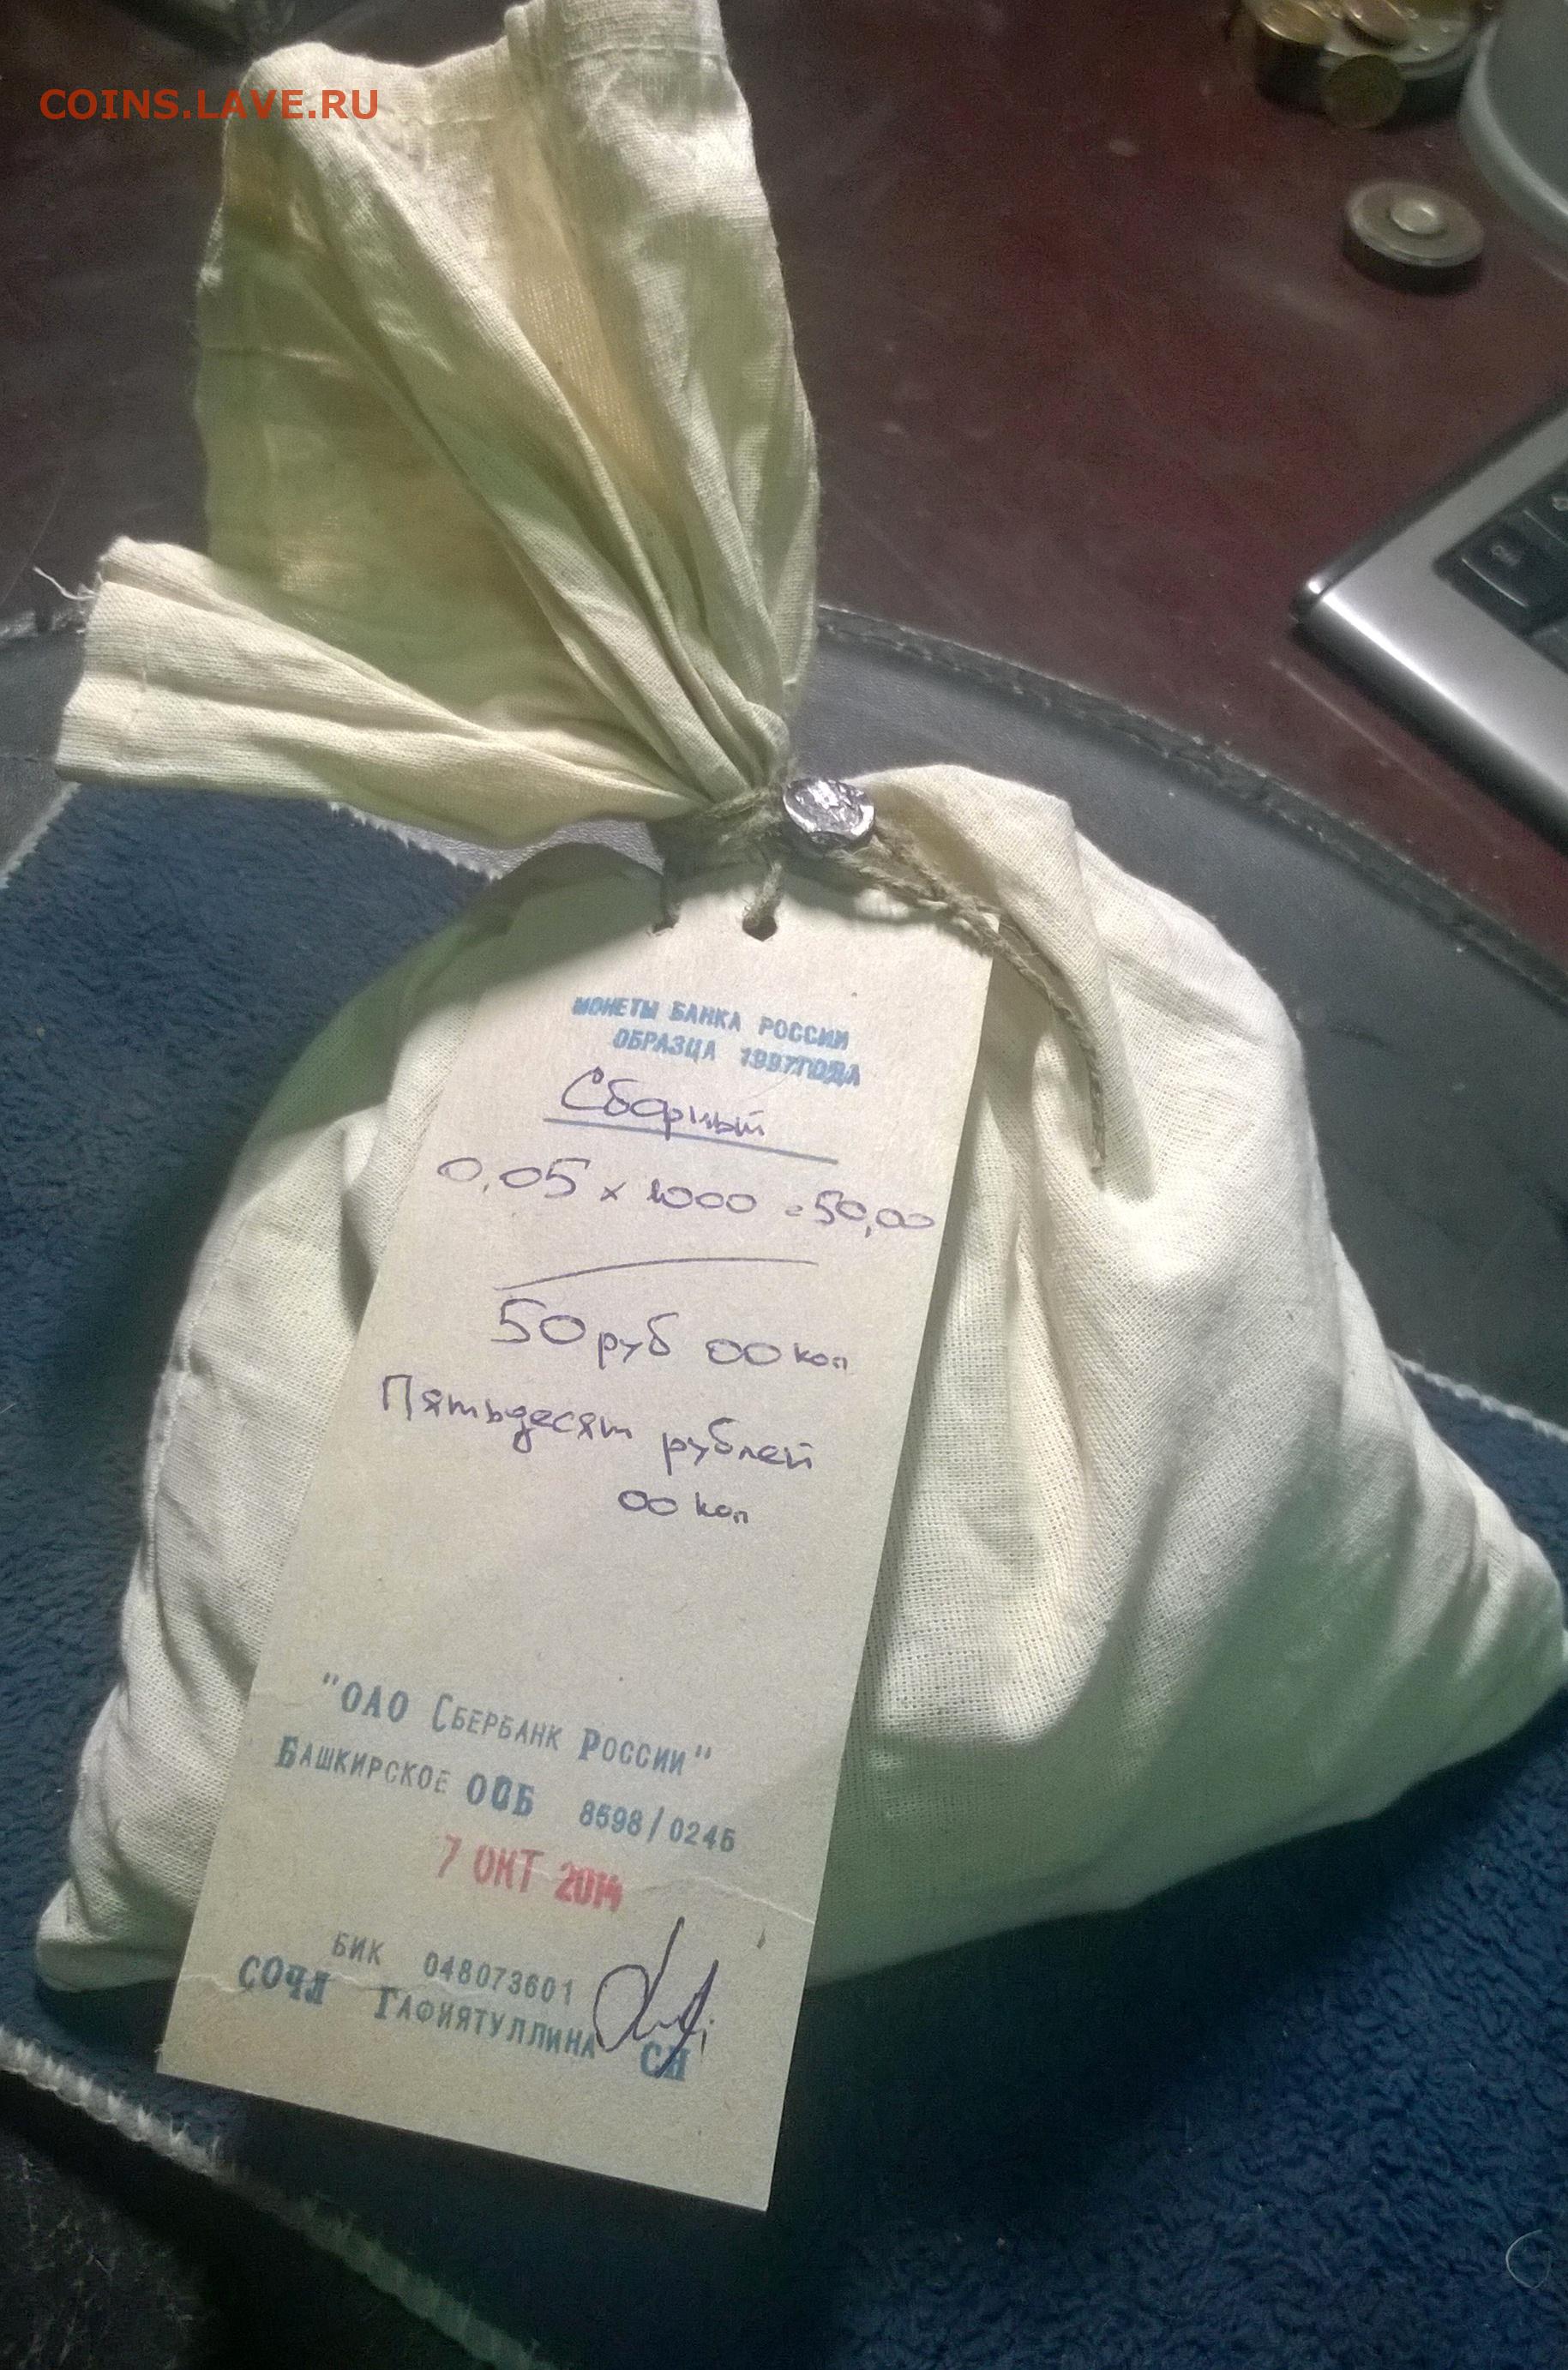 COINS.LAVE.RU
МОНЕТЫ БАНКА РОССИИ
ОБРАЗЦА 1997ГОДА
Сборный
0,05 x 1000 = 50,00
50 руб 00 коп
Пятьдесят рублей
00 коп
"ОАО Сбербанк России"
Башкирское ОСБ 8598/0245
7 ОКТ 2014
БИК 048073601
СОЧЛ Гафиятуллина СН